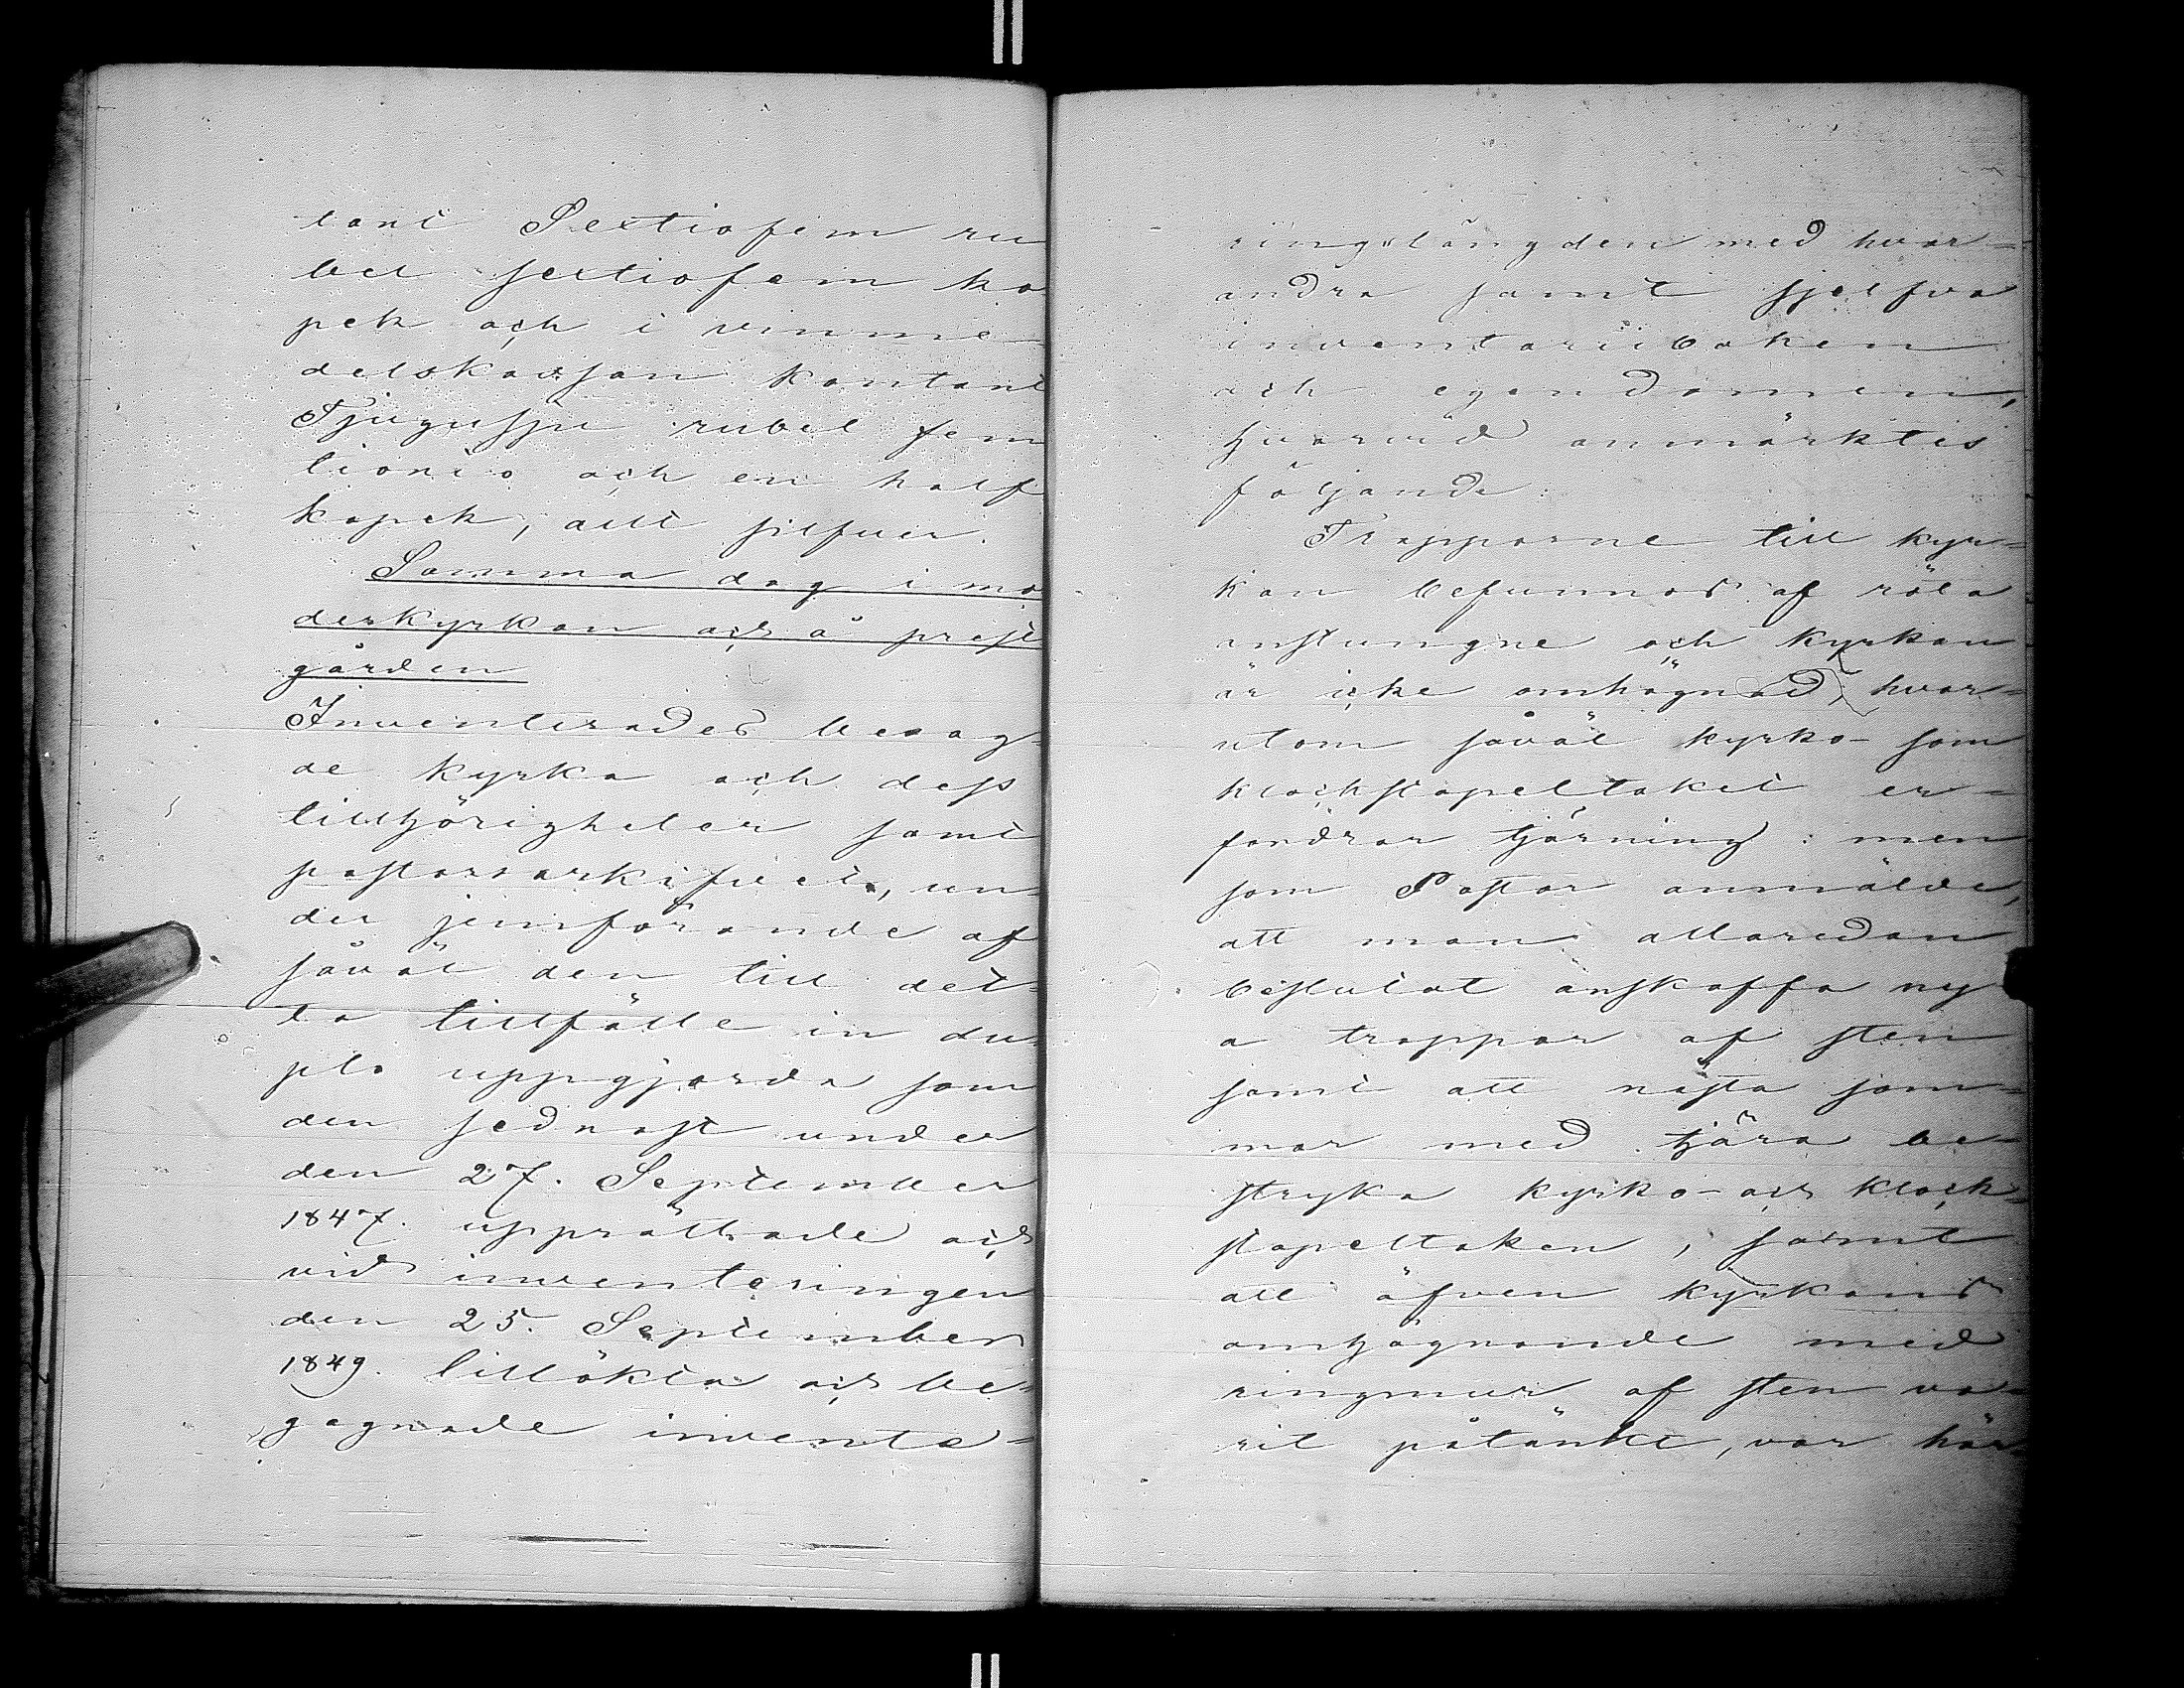 tant Sextiofem ru
bel sextiofem ko
pek och i vinme
delskassan kontant
Tjugusju rubel fem
tionio och en half
kopek, allt silfver.
Samma dag i mo
derkyrkan och å prest
gården
Inventerades besag
de kyrka och dess
tillhörigheter samt
pastorsarkifvet, un
der jemförande af
såväl den till det-
ta tillfälle in du
plo uppgjorda som
den sednast under
den 27. September
1847. upprättade och
vid inventeringen
den 25. September
1849. tillökta och be-
gagnade invente-
ringslängden med hvar-
andra samt sjelfva
inventariiboken
och egendomen,
hvarvid anmärktes
följande:
Trapporne till kyr-
kan befunnos af röta
anstungne och kyrkan
är icke omhägnad, hvar-
utom såväl kyrko- som
klockstapeltaket er-
fordrar tjärning: men
som Pastor anmälde,
att man allaredan
beslutat anskaffa ny
a trappor af sten
samt att nästa som-
mar med tjära be-
stryka kyrko- och klock-
stapeltaken, samt
att äfven kyrkans
omhägnande med
ringmur af sten va-
rit påtänkt, var här-